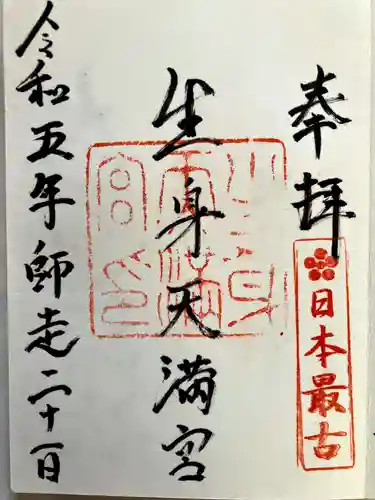 奉拝
日本最古
生身天満宮
令和五年師走二十一日